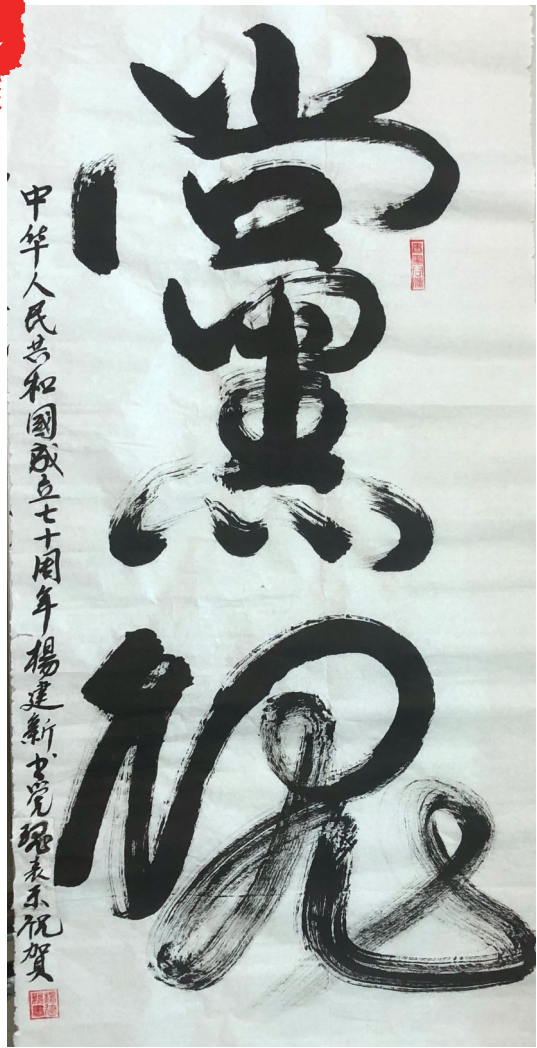 黨魂
中华人民共和國成立七十周年楊建新书党魂表示祝贺